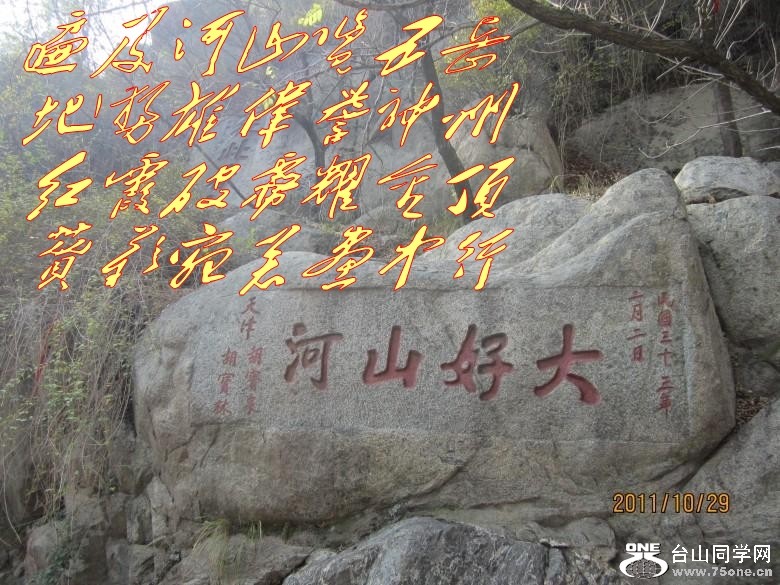 遍及河山览五岳
地势雄伟誉神州
红霞破雾耀金顶
赞影宛若画中行
民国三十三年
二月二日
大好山河
天津 胡宝泉
胡宝林
2011/10/29
ONE 台山同学网
www.75one.cn